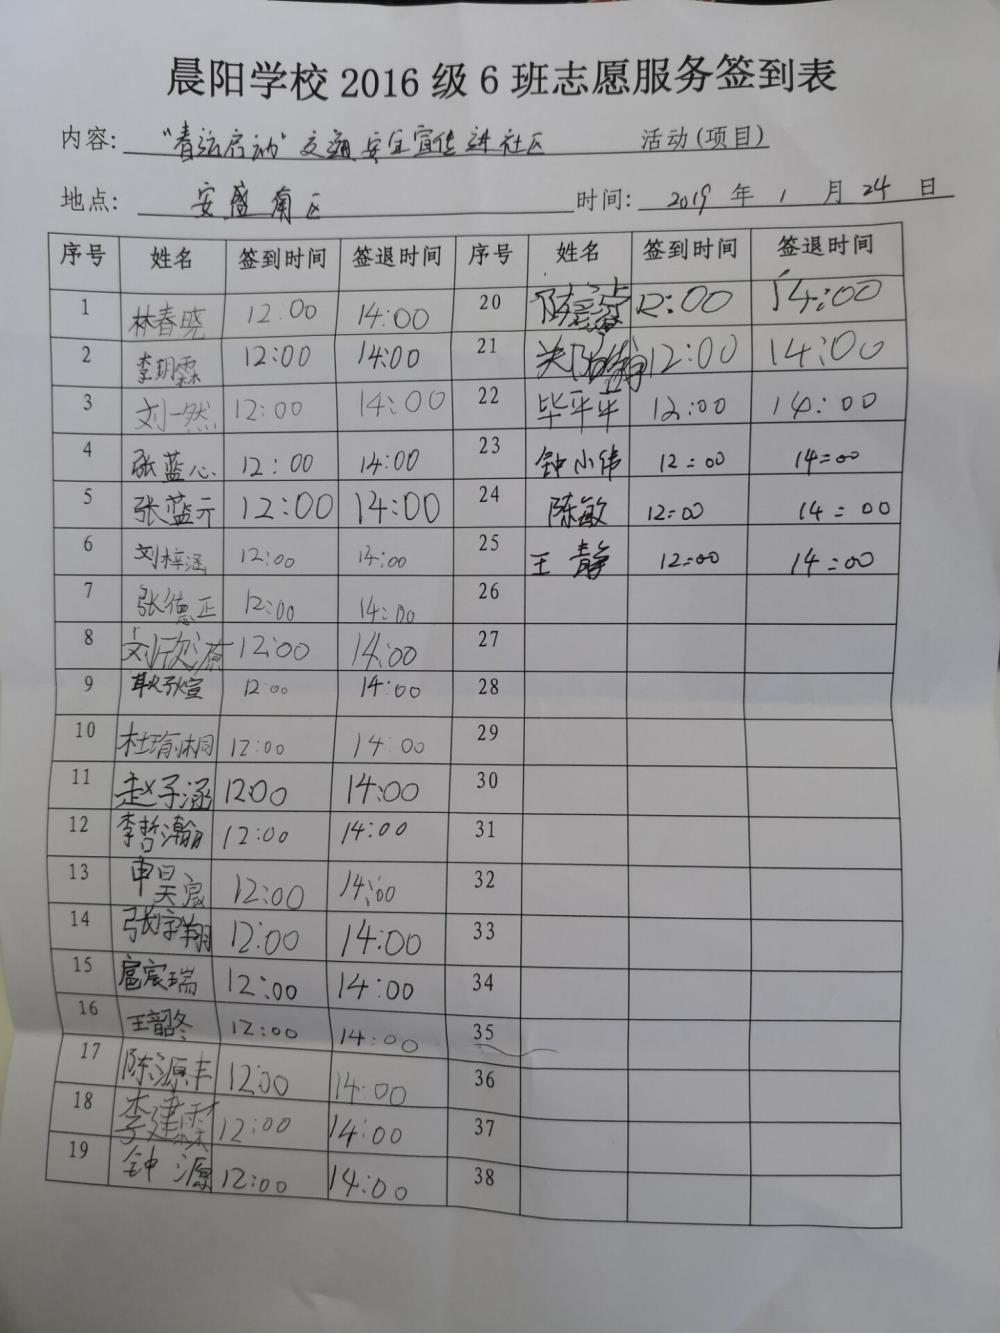 晨阳学校2016级6班志愿服务签到表
内容: "春运启动"交通安全宣传进社区 活动(项目)
地点: 安盛南区 时间: 2019 年 1 月 24 日
序号 姓名 签到时间 签退时间 序号 姓名 签到时间 签退时间
1 林春晓 12:00 14:00 20 12:00 14:00
2 李玥霖 12:00 14:00 21 12:00 14:00
3 刘一然 12:00 14:00 22 毕平平 12:00 14:00
4 张蓝心 12:00 14:00 23 钟小伟 12:00 14:00
5 张蓝亓 12:00 14:00 24 陈敏 12:00 14:00
6 刘梓涵 12:00 14:00 25 王静 12:00 14:00
7 张德正 12:00 14:00 26
8 刘欣源 12:00 14:00 27
9 耿张萱 12:00 14:00 28
10 杜瑜桐 12:00 14:00 29
11 赵子涵 12:00 14:00 30
12 李哲瀚 12:00 14:00 31
13 申昊宸 12:00 14:00 32
14 张宇翔 12:00 14:00 33
15 扈宸瑞 12:00 14:00 34
16 王韶冬 12:00 14:00 35
17 陈源丰 12:00 14:00 36
18 李建霖 12:00 14:00 37
19 钟源 12:00 14:00 38